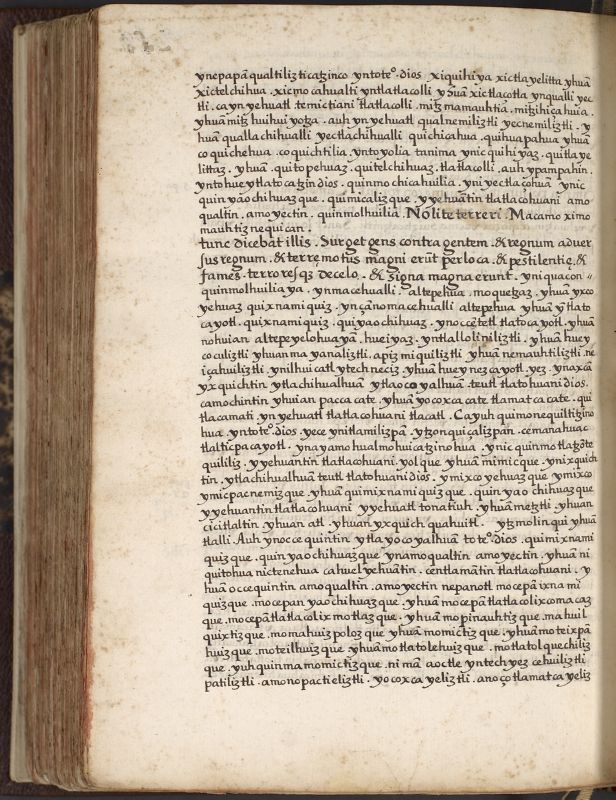 ynepapā qualtilizticatzinco yntoteº. dios xiquihiya xictlayelitta yhuā
xictelchihua. xicmo cahualti yntlatlacolli yhuā xictlaçotla ynqualli yec
tli. ca yn yehuatl temictiani tlatlacolli. mitzmamauhtia. mitzihiçahuia.
yhuā mitz huihuiyotza. auh yn yehuatl qualnemiliztli yecnemiliztli. y
huā qualla chihualli yectlachihualli quichicahua. quihuapahua yhuā
coquichehua. coquichtilia. yntoyolia tanima ynic quihiyaz. quitlaye
littaz. yhuā. quitopehuaz. quitelchihuaz. tlatlacolli. auh ypampahin.
yntohueytlatocatzin dios. quinmochicahuilia. yni yectlaçohuā ynic
quinyaochihuazque. quimicalizque. yyehuātin tlatlacohuani amo
qualtin. amo yectin. quinmolhuilia. Nolite terreri. Macamo ximo
mauhtiznequican.
tunc dicebat illis. Surget gens contra gentem. & regnum aduer
sus regnum. & terręmotus magni erūt perloca. & pestilentię. &
fames. terroresqȝ decelo. & signa magna erunt. yniquacon
quinmolhuilia ya. ynmacehualli altepehua. moquetzaz. yhuā yxco
yehuaz quixnamiquiz. ynçānomacehualli altepehua yhuā yn tlato
cayotl. quixnamiquiz. quiyaochihuaz. ynoccētetl tlatocayotl. yhuā
nohuian altepeyelohuayā. hueiyaz. yntlallolliniliztli. yhuā huey
cocoliztli yhuan mayanaliztli. apizmiquiliztli. yhuā nemauhtiliztli. ne
içahuiliztli. ynilhuicatl ytech neciz. yhuā huey nezcayotl. yez. ynaxcā
yxquichtin ytlachihualhuā ytlaocoyalhuā. teutl tlatohuani dios.
camochintin yhuian paccacate. yhuā yocoxcacate tlamatcacate. qui
tlacamati yn yehuatl tlatlacohuani tlacatl. Cayuh quimonequiltitzino
hua. yntoteº. dios. yece ynitlamilizpā. ytzonquiçalizpan. cemanahuac
tlalticpacayotl. ynayamo hualmohuicatzinohua. ynic quinmotlatzōte
quililiz. yyehuantin tlatlacohuani. yolque yhuā mimicque. ynixquich
tin. ytlachihualhuā teutl tlatohuani dios. ymixcoyehuazque ymixco
ymicpacnemizque. yhuā quimixnamiquizque. quinyaochihuazque
yyehuantin tlatlacohuani yyehuatl tonatiuh. yhuā metztli. yhuan
cicitlaltin. yhuan atl. yhuan yxquich quahuitl. ytzmolinqui yhuā
tlalli. Auh ynoccequintin ytlayocoyalhuā toteº. dios. quimixnami
quizque. quinyaochihuazque ynamoqualtin amo yectin. yhuā ni
quitohua nictenehua cahuel yehuātin. centlamātin tlatlacohuani. y
huā occequintin amoqualtin. amo yectin nepanotl mocepā ixnami
quizque. mocepan yaochihuazque. yhuā mocepā tlatlacolixcomacaz
que. mocepā tlatlacolixmotlazque. yhuā mopinauhtizque. mahuil
quixtizque. momahuizpolozque yhuā momictizque. yhuā moteixpā
huizque. moteilhuizque yhuā motlatolehuizque. motlatolquechiliz
que. yuhquinma momictizque. ni mā aoctle yntech yez cehuiliztli
patiliztli. amono pactieliztli. yocoxcayeliztli. anoço tlamatcayeliz